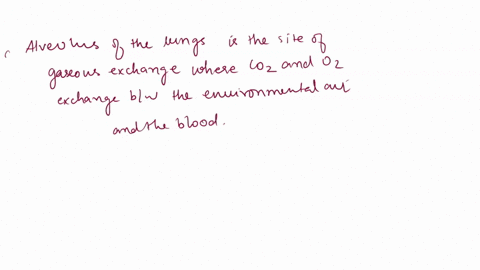 Alveolus of the lungs is the site of
gaseous exchange where CO2 and O2
exchange b/w the environmental air
and the blood.